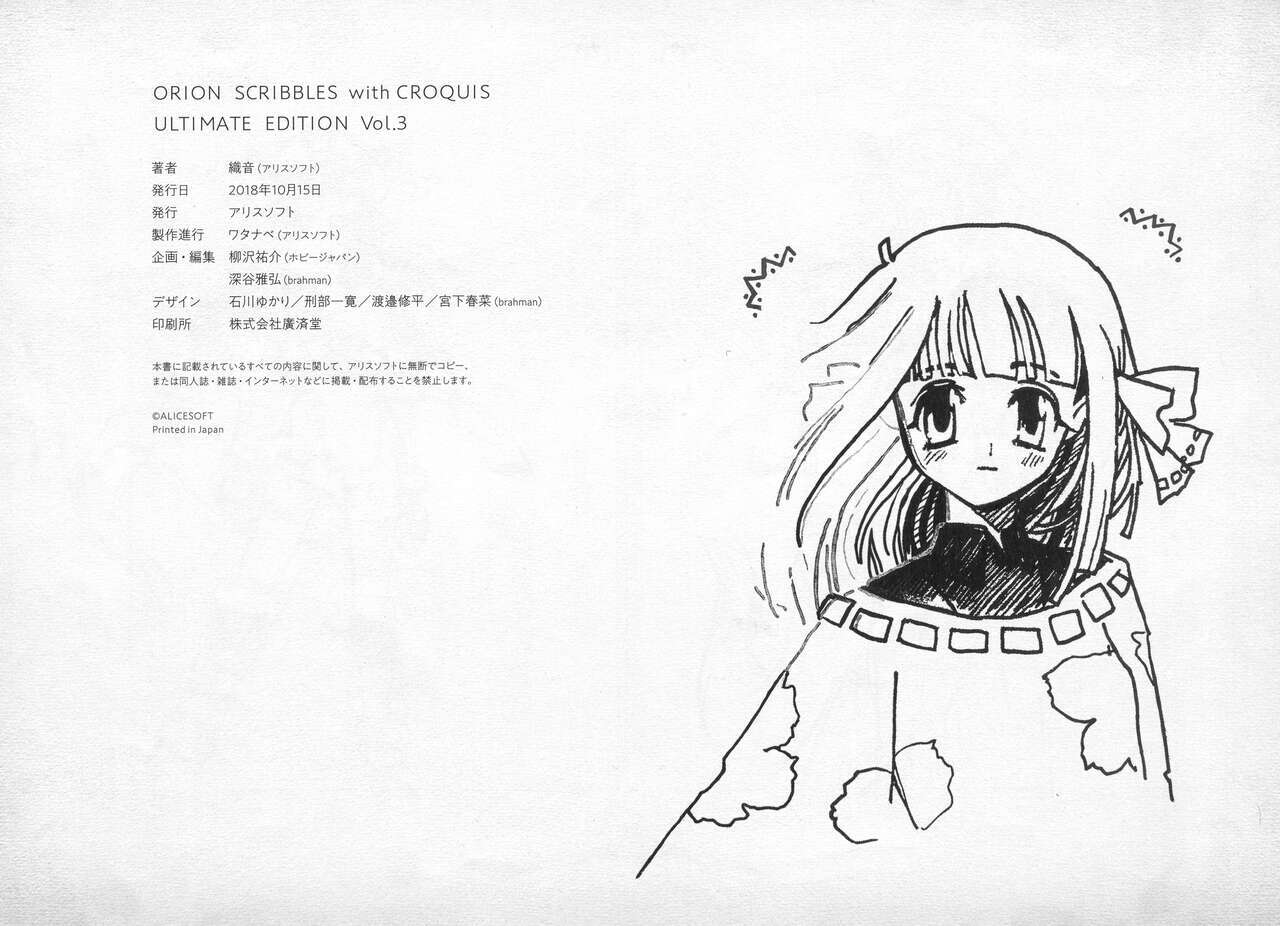 ORION SCRIBBLES with CROQUIS
ULTIMATE EDITION Vol.3
著者 織音（アリスソフト）
発行日 2018年10月15日
発行 アリスソフト
製作進行 ワタナベ（アリスソフト）
企画・編集 柳沢祐介（ホビージャパン）
深谷雅弘（brahman）
デザイン 石川ゆかり／刑部一寛／渡邉修平／宮下春菜（brahman）
印刷所 株式会社廣済堂
本書に記載されているすべての内容に関して、アリスソフトに無断でコピー、
または同人誌・雑誌・インターネットなどに掲載・配布することを禁止します。
©ALICESOFT
Printed in Japan